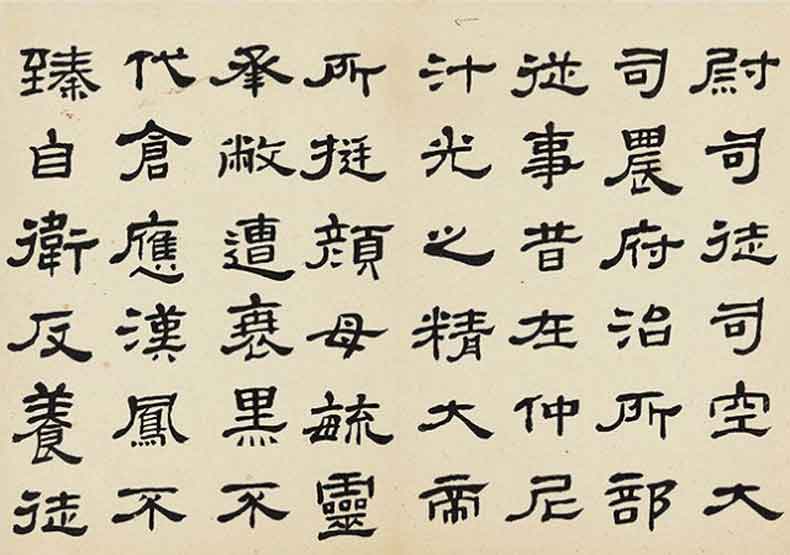 尉司徒司空大
司農府治所部
從事昔在仲尼
汁光之精大帝
所挺顏母毓靈
承敝遭衰黑不
代倉應漢鳳不
臻自衛反養徒